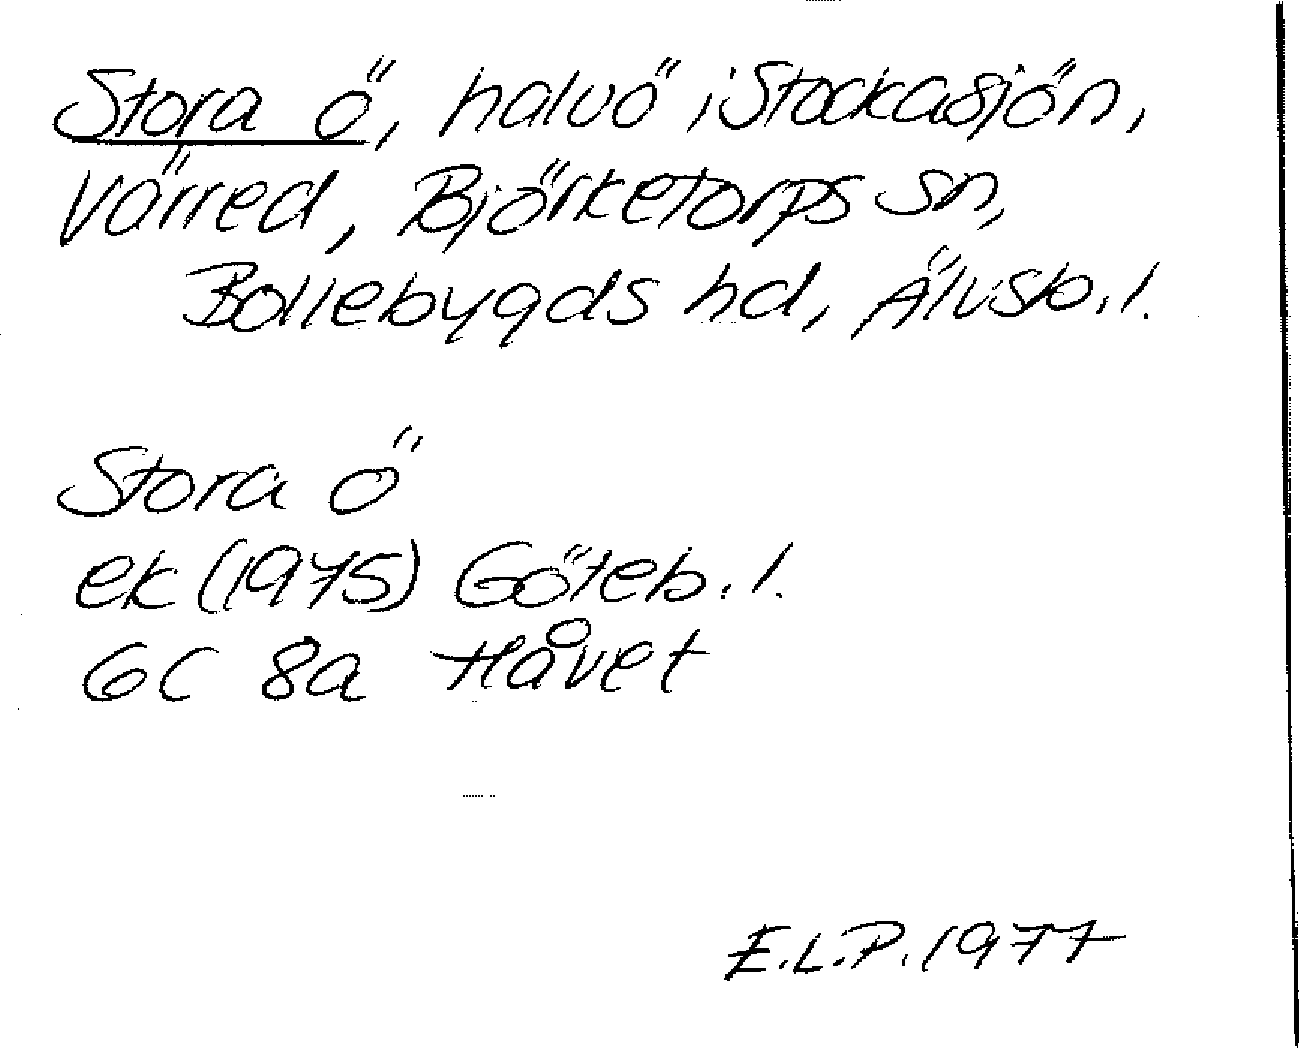 Stora Ö, halvö i Stockasjön,
Värred, Björketorps sn,
Bollebygds hd, Älvsb.l.
Stora Ö
ek (1975) Göteb.l.
6C 8a Håvet
E.L.P. 1977